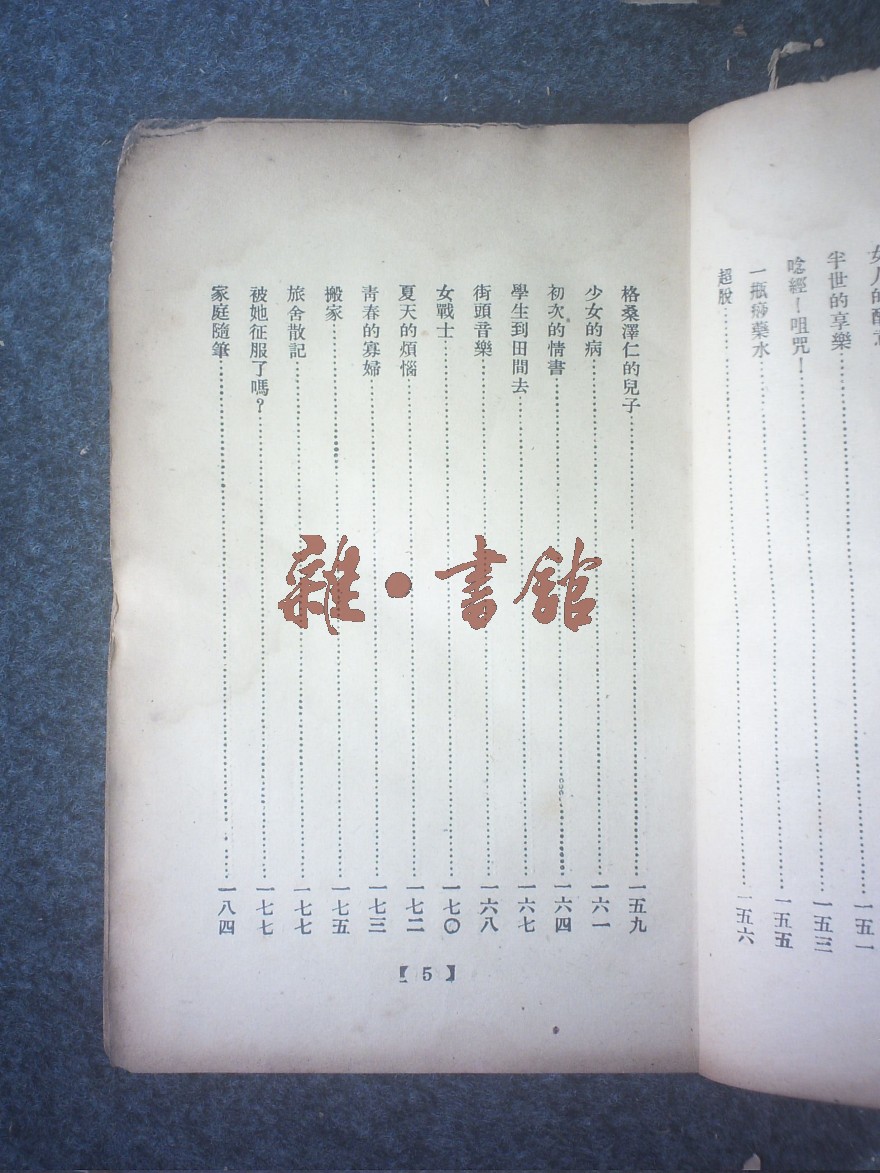 女人的醉意
半世的享樂……一五一
唸經—咀咒—……一五三
一瓶痧藥水……一五五
超脫……一五六
格桑澤仁的兒子……一五九
少女的病……一六一
初次的情書……一六四
學生到田間去……一六七
街頭音樂……一六八
女戰士……一七〇
夏天的煩惱……一七二
青春的寡婦……一七三
搬家……一七五
旅舍散記……一七七
被她征服了嗎？……一七七
家庭隨筆……一八四
【5】
雜·書館